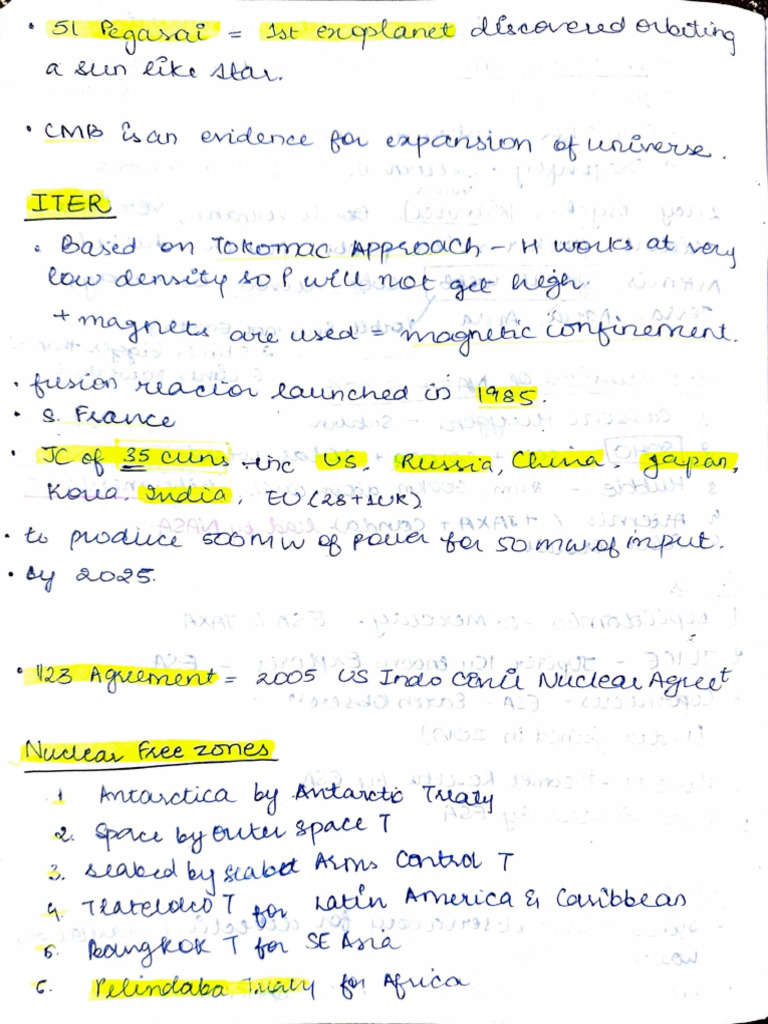 • 51 Pegasai = 1st exoplanet discovered orbiting
a sun like star.
• CMB is an evidence for expansion of universe.
ITER
• Based on Tokomac Approach - H works at very
low density so P will not get high.
+ magnets are used = magnetic confinement.
• fusion reactor launched in 1985.
• S. France
• JC of 35 cuns inc US, Russia, China, Japan,
Korea, India, EU (28+1UK)
• to produce 500MW of power for 50MW of input.
• by 2025.
• 123 Agreement = 2005 US Indo Civil Nuclear Agreet
Nuclear Free Zones
1 Antarctica by Antarctic Treaty
2. Space by Outer space T
3. Seabed by Seabed Arms Control T
4. Tlateloco T for Latin America & Caribbean
5. Bangkok T for SE Asia
6. Pelindaba Treaty for Africa